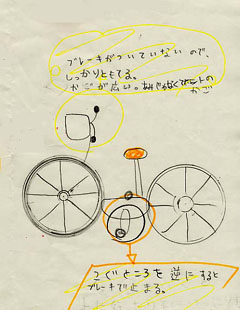 ブレーキがついていないので、
しっかりともてる。
かごが広い。
かご
こぐところを逆にすると
ブレーキで止まる。